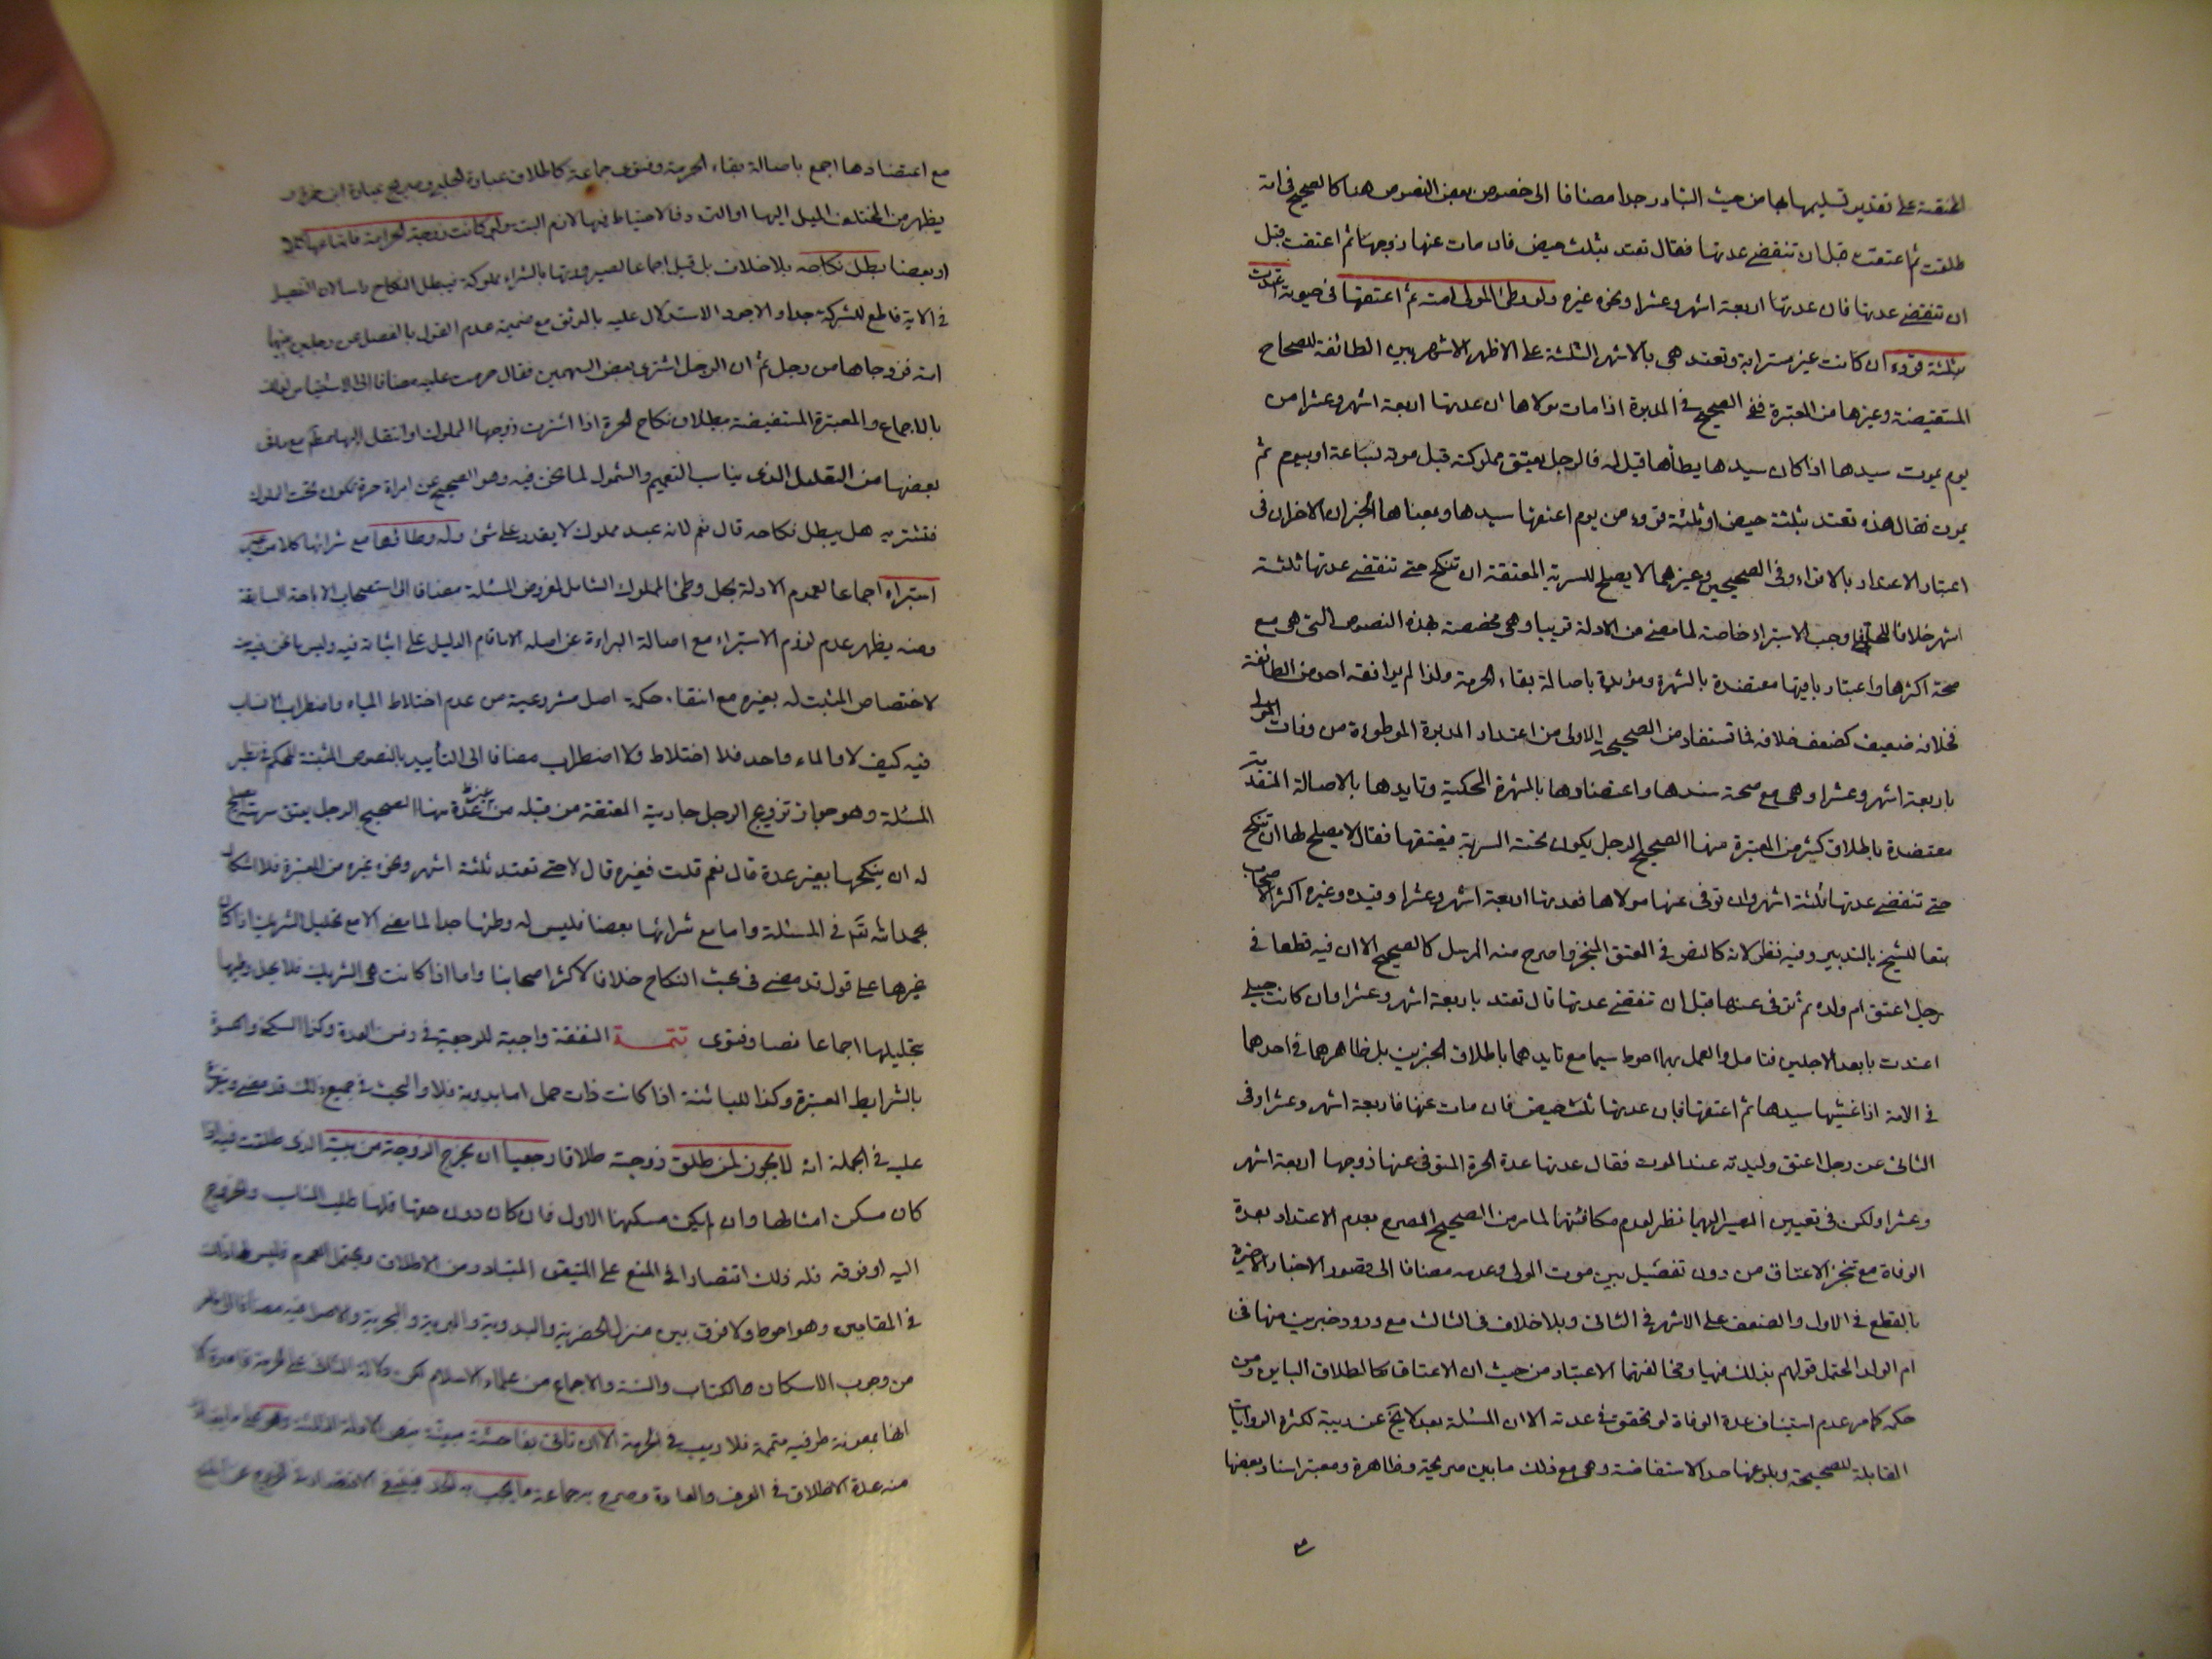 المحققة على تقدير تسليمها لها من حيث التبادر جدا مضافا الى خصوص بعض النصوص هنا كالصحيح في امة
طلقت ثم اعتقت قبل ان تنقضى عدتها فقال تعتد بثلث حيض فان مات عنها زوجها ثم اعتقت قبل
ان تنقضى عدتها فان عدتها اربعة اشهر وعشرا ونحوه غيره ولو وطئ المولى امته ثم اعتقها في حيوته اعتدت
بثلثة قروء ان كانت غير مسترابة وتعتد هي بالاشهر الثلثة على الاظهر الاشهر بين الطائفة للصحاح
المستفيضة وغيرها من المعتبرة ففى الصحيح في المدبرة اذا مات مولاها ان عدتها اربعة اشهر وعشرا من
يوم يموت سيدها اذا كان سيدها يطأها قيل له فالرجل يعتق مملوكته قبل موته بساعة او بيوم ثم
يموت فقال هذه تعتد بثلثة حيض او ثلثة قروء من يوم اعتقها سيدها وبمعناها الخبران الاخران في
اعتبار الاعتداد بالاقراء وفى الصحيحين وغيرهما لا يصلح للسرية المعتقة ان تنكح حتى تنقضى عدتها ثلثة
اشهر خلافا للحلى فاوجب الاستبراء خاصة لما مضى من الادلة قريبا وهى مخصصة بهذه النصوص التى هى مع
صحة اكثرها واعتبار باقيها معتضدة بالشهرة ومؤيدة باصالة بقاء الحرمة ولذا لم يوافقه احد من الطائفة
فخلافه ضعيف كضعف خلافه فيما تستفاد من الصحيحة الاولى من اعتداد المدبرة الموطوءة من وفات المولى
باربعة اشهر وعشرا وهى مع صحة سندها واعتضادها بالشهرة المحكية وتايدها بالاصالة المتقدمة
معتضدة باطلاق كثير من المعتبرة منها الصحيح الرجل يكون تحته السرية فيعتقها فقال لا يصلح لها ان تنكح
حتى تنقضى عدتها ثلثة اشهر وان توفى عنها مولاها فعدتها اربعة اشهر وعشرا وقيده وغيره اكثر الاصحاب
تبعا للشيخ بالتدبير وفيه نظر لانه كالنص في العتق المنجز واصرح منه المرسل كالصحيح الا ان فيه قطعا في
رجل اعتق ام ولده ثم توفى عنها قبل ان تنقضى عدتها قال تعتد باربعة اشهر وعشرا وان كانت حبلى
اعتدت بابعد الاجلين فتامل والعمل بهما احوط سيما مع تايدهما باطلاق الخبرين بل ظاهرهما في احدهما
في الامة اذا غشيها سيدها ثم اعتقها فان عدتها ثلث حيض فان مات عنها فاربعة اشهر وعشرا وفى
الثانى عن رجل اعتق وليدته عند الموت فقال عدتها عدة الحرة المتوفى عنها زوجها اربعة اشهر
وعشرا ولكن في تعيين المصير اليهما نظر لعدم مكافئتهما لما مر من الصحيح المصرح بعدم الاعتداد بعدة
الوفاة مع تنجز الاعتاق من دون تفصيل بين موت المولى وعدمه مضافا الى قصور الاخبار الاخيرة
بالقطع في الاول والضعف على الاشهر في الثانى وبلا خلاف في الثالث مع ورود خبرين منها في
ام الولد المحتمل قولهم بذلك فيها ومخالفتهما الاعتبار من حيث ان الاعتاق كالطلاق الباين ومن
حكمه كما مر عدم استيناف عدة الوفاة لو تحققت في عدته الا ان المسئلة بعد لا تخ عن ريبة لكثرة الروايات
المقابلة للصحيحة وبلوغها حد الاستفاضة وهى مع ذلك ما بين صريحة وظاهرة ومعتبر اسناد بعضها
مع اعتضادها اجمع باصالة بقاء الحرمة وفتوى جماعة كاطلاق عبارة الحلبى وصريح عبارة ابن حمزة و
يظهر من المختلف الميل اليها او التردد فالاحتياط فيها لازم البتة ولو كانت زوجة الحر امة فابتاعها كملا
او بعضا بطل نكاحه بلا خلاف بل قيل اجماعا لصيرورتها بالشراء مملوكة فيبطل النكاح راسا لان التفصيل
في الاية قاطع للشركة جدا والاجود الاستدلال عليه بالموثق مع ضميمة عدم القول بالفصل عن رجلين بينهما
امة فزوجاها من رجل ثم ان الرجل اشترى بعض السهمين فقال حرمت عليه مضافا الى
بالاجماع والمعتبرة المستفيضة ببطلان نكاح الحرة اذا اشترت زوجها المملوك او انتقل اليها مطلقا مع ما في
بعضها من التعليل الذى يناسب التعميم والشمول لما نحن فيه وهو الصحيح عن امراة حرة تكون تحت المملوك
فتشتريه هل يبطل نكاحه قال نعم لانه عبد مملوك لا يقدر على شئ وله وطائها مع شرائها كلا من غير
استبراء اجماعا لعموم الادلة بحل وطئ المملوك الشامل لفروض المسئلة مضافا الى استصحاب الاباحة السابقة
ومنه يظهر عدم لزوم الاستبراء مع اصالة البراءة عن اصله الا ما قام الدليل على اثباته فيه وليس ما نحن فيه منه
لاختصاص المثبت له بغيره مع انتفاء حكمة اصل مشروعيته من عدم اختلاط المياه واضطراب الانساب
فيه كيف لا والماء واحد فلا اختلاط ولا اضطراب مضافا الى التأييد بالنصوص المثبتة للحكم في نظير
المسئلة وهو جواز تزويج الرجل جاريته المعتقة من قبله من غير عدة منها الصحيح الرجل يعتق سريته ايصلح
له ان ينكحها بغير عدة قال نعم قلت فغيره قال لا حتى تعتد ثلثة اشهر ونحوه غيره من المعتبرة فلا اشكال
بحمد الله في المسئلة واما مع شرائها بعضا فليس له وطئها جدا لما مضى الا مع تحليل الشريك اذا كان
غيرها على قول قد مضى في بحث النكاح خلافا لاكثر اصحابنا واما اذا كانت هى الشريك فلا يحل وطيها
بتحليلها اجماعا نصا وفتوى تتمة النفقة واجبة للرجعية في زمن العدة وكذا السكنى والكسوة
بالشرايط المعتبرة وكذا للبائنة اذا كانت ذات حمل اما بدونه فلا والبحث في جميع ذلك قد مضى
عليه في الجملة انه لا يجوز لمن طلق زوجته طلاقا رجعيا ان يخرج الزوجة من بيته الذى طلقت فيه اذا
كان مسكن امثالها وان لم يكن مسكنها الاول فان كان دون حقها فلها طلب المناسب والخروج
اليه او فوقه فله ذلك اقتصارا في المنع على المتيقن المتبادر من الاطلاق ويحتمل العموم فليس لها ذلك
في المقامين وهو احوط ولا فرق بين منزل الحضرية والبدوية والبرية والبحرية والاصل فيه مضافا الى ما مر
من وجوب الاسكان والكتاب والسنة والاجماع من علماء الاسلام لكن دلالة الثالث على الحرمة
انها بمعونة طرفيه متممة فلا ريب في الحرمة الا ان تاتى بفاحشة مبينة
منه عدة الاطلاق في العرف والعادة وصرح به جماعة ما يجب به الحد